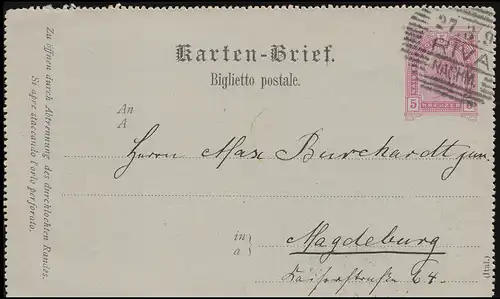 Karten-Brief.
Biglietto postale.
27 3
RIVA
NACHM.
5
KREUZER
An
A
Herrn Max Burchardt jun.
in
a
Magdeburg
Kaiserstraße 64.
(Ital.)
Zu öffnen durch Abtrennung des durchlochten Randes.
Si apre staccando l'orlo perforato.